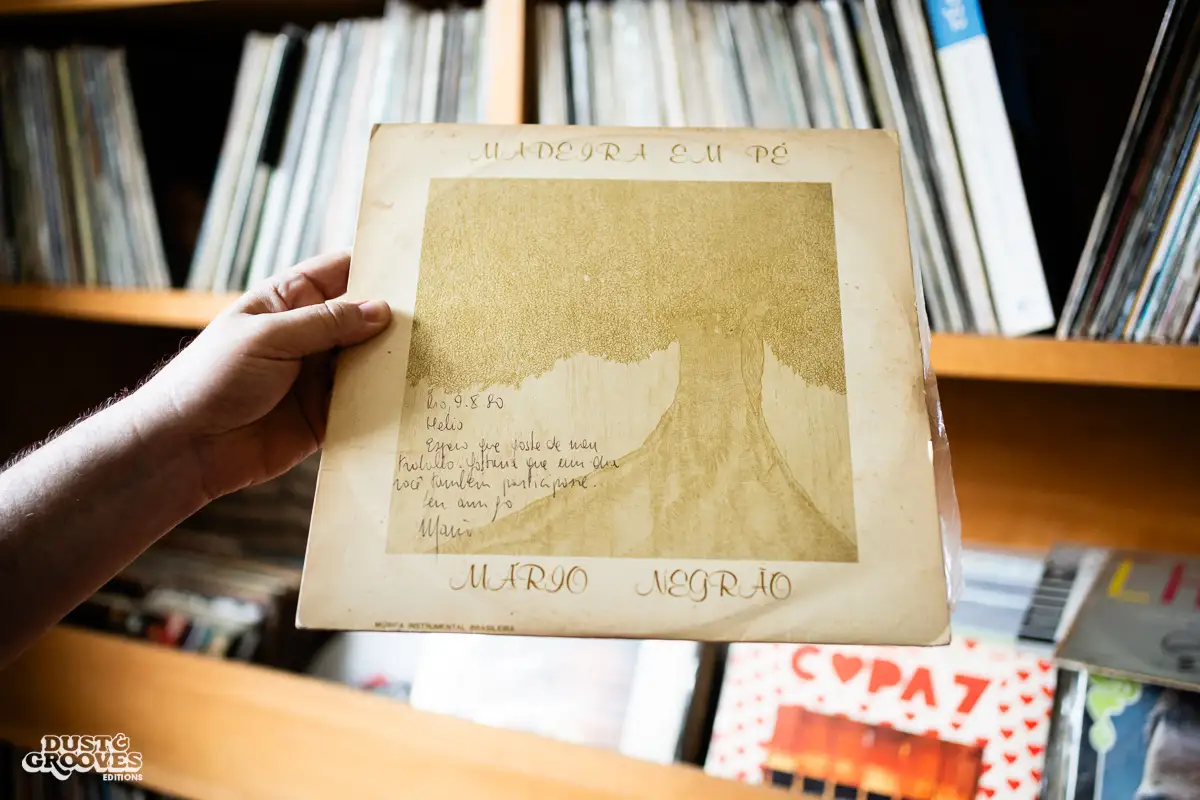 MADEIRA EM PÉ
Rio, 9.8.80
Helio
Espero que goste de meu
trabalho. Gostaria que um dia
você também participasse.
Seu amigo
Mario
MÁRIO NEGRÃO
MÚSICA INSTRUMENTAL BRASILEIRA
COPA 7
LI
DUST &
GROOVES
EDITIONS